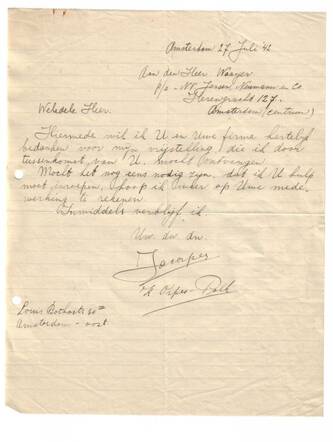 Amsterdam 27 Juli 42
Aan den Heer Waayer
p/a N.V. Jansen, Neumann en Co
Herengracht 127.
Amsterdam (centrum)
Weledele Heer.
Hiermede wil ik U en Uwe firma hartelijk
bedanken voor mijn vrijstelling, die ik door
tussenkomst van U. mocht ontvangen.
Mocht het nog eens nodig zijn, dat ik U hulp
moet inroepen, hoop ik onder op Uwe mede-
werking te rekenen.
Inmiddels verblijf ik.
Uw. dw. dn.
Amsterdam - oost.